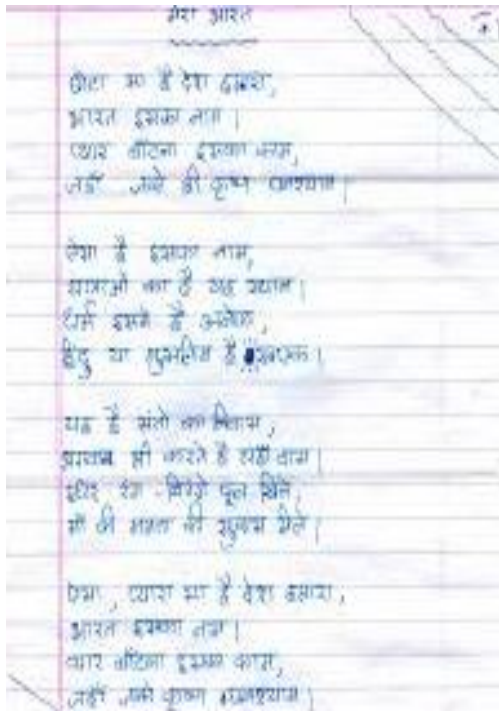 मेरा भारत
छोटा सा है देश हमारा,
भारत इसका नाम।
प्यार बाँटना इसका काम,
जहाँ जन्मे श्री कृष्ण घनश्याम।
ऐसा है इसका नाम,
का है यह स्थान।
धर्म इसमें है अनेक,
हिंदु या मुसलिम है सब एक।
यह है संतो का निवास,
भी करते है यहाँ वास।
रंग-बिरंगे फूल खिले,
माँ की ममता की मिले।
ऐसा, प्यारा सा है देश हमारा,
भारत इसका नाम।
प्यार बाँटना इसका काम,
जहाँ जन्मे कृष्ण घनश्याम।